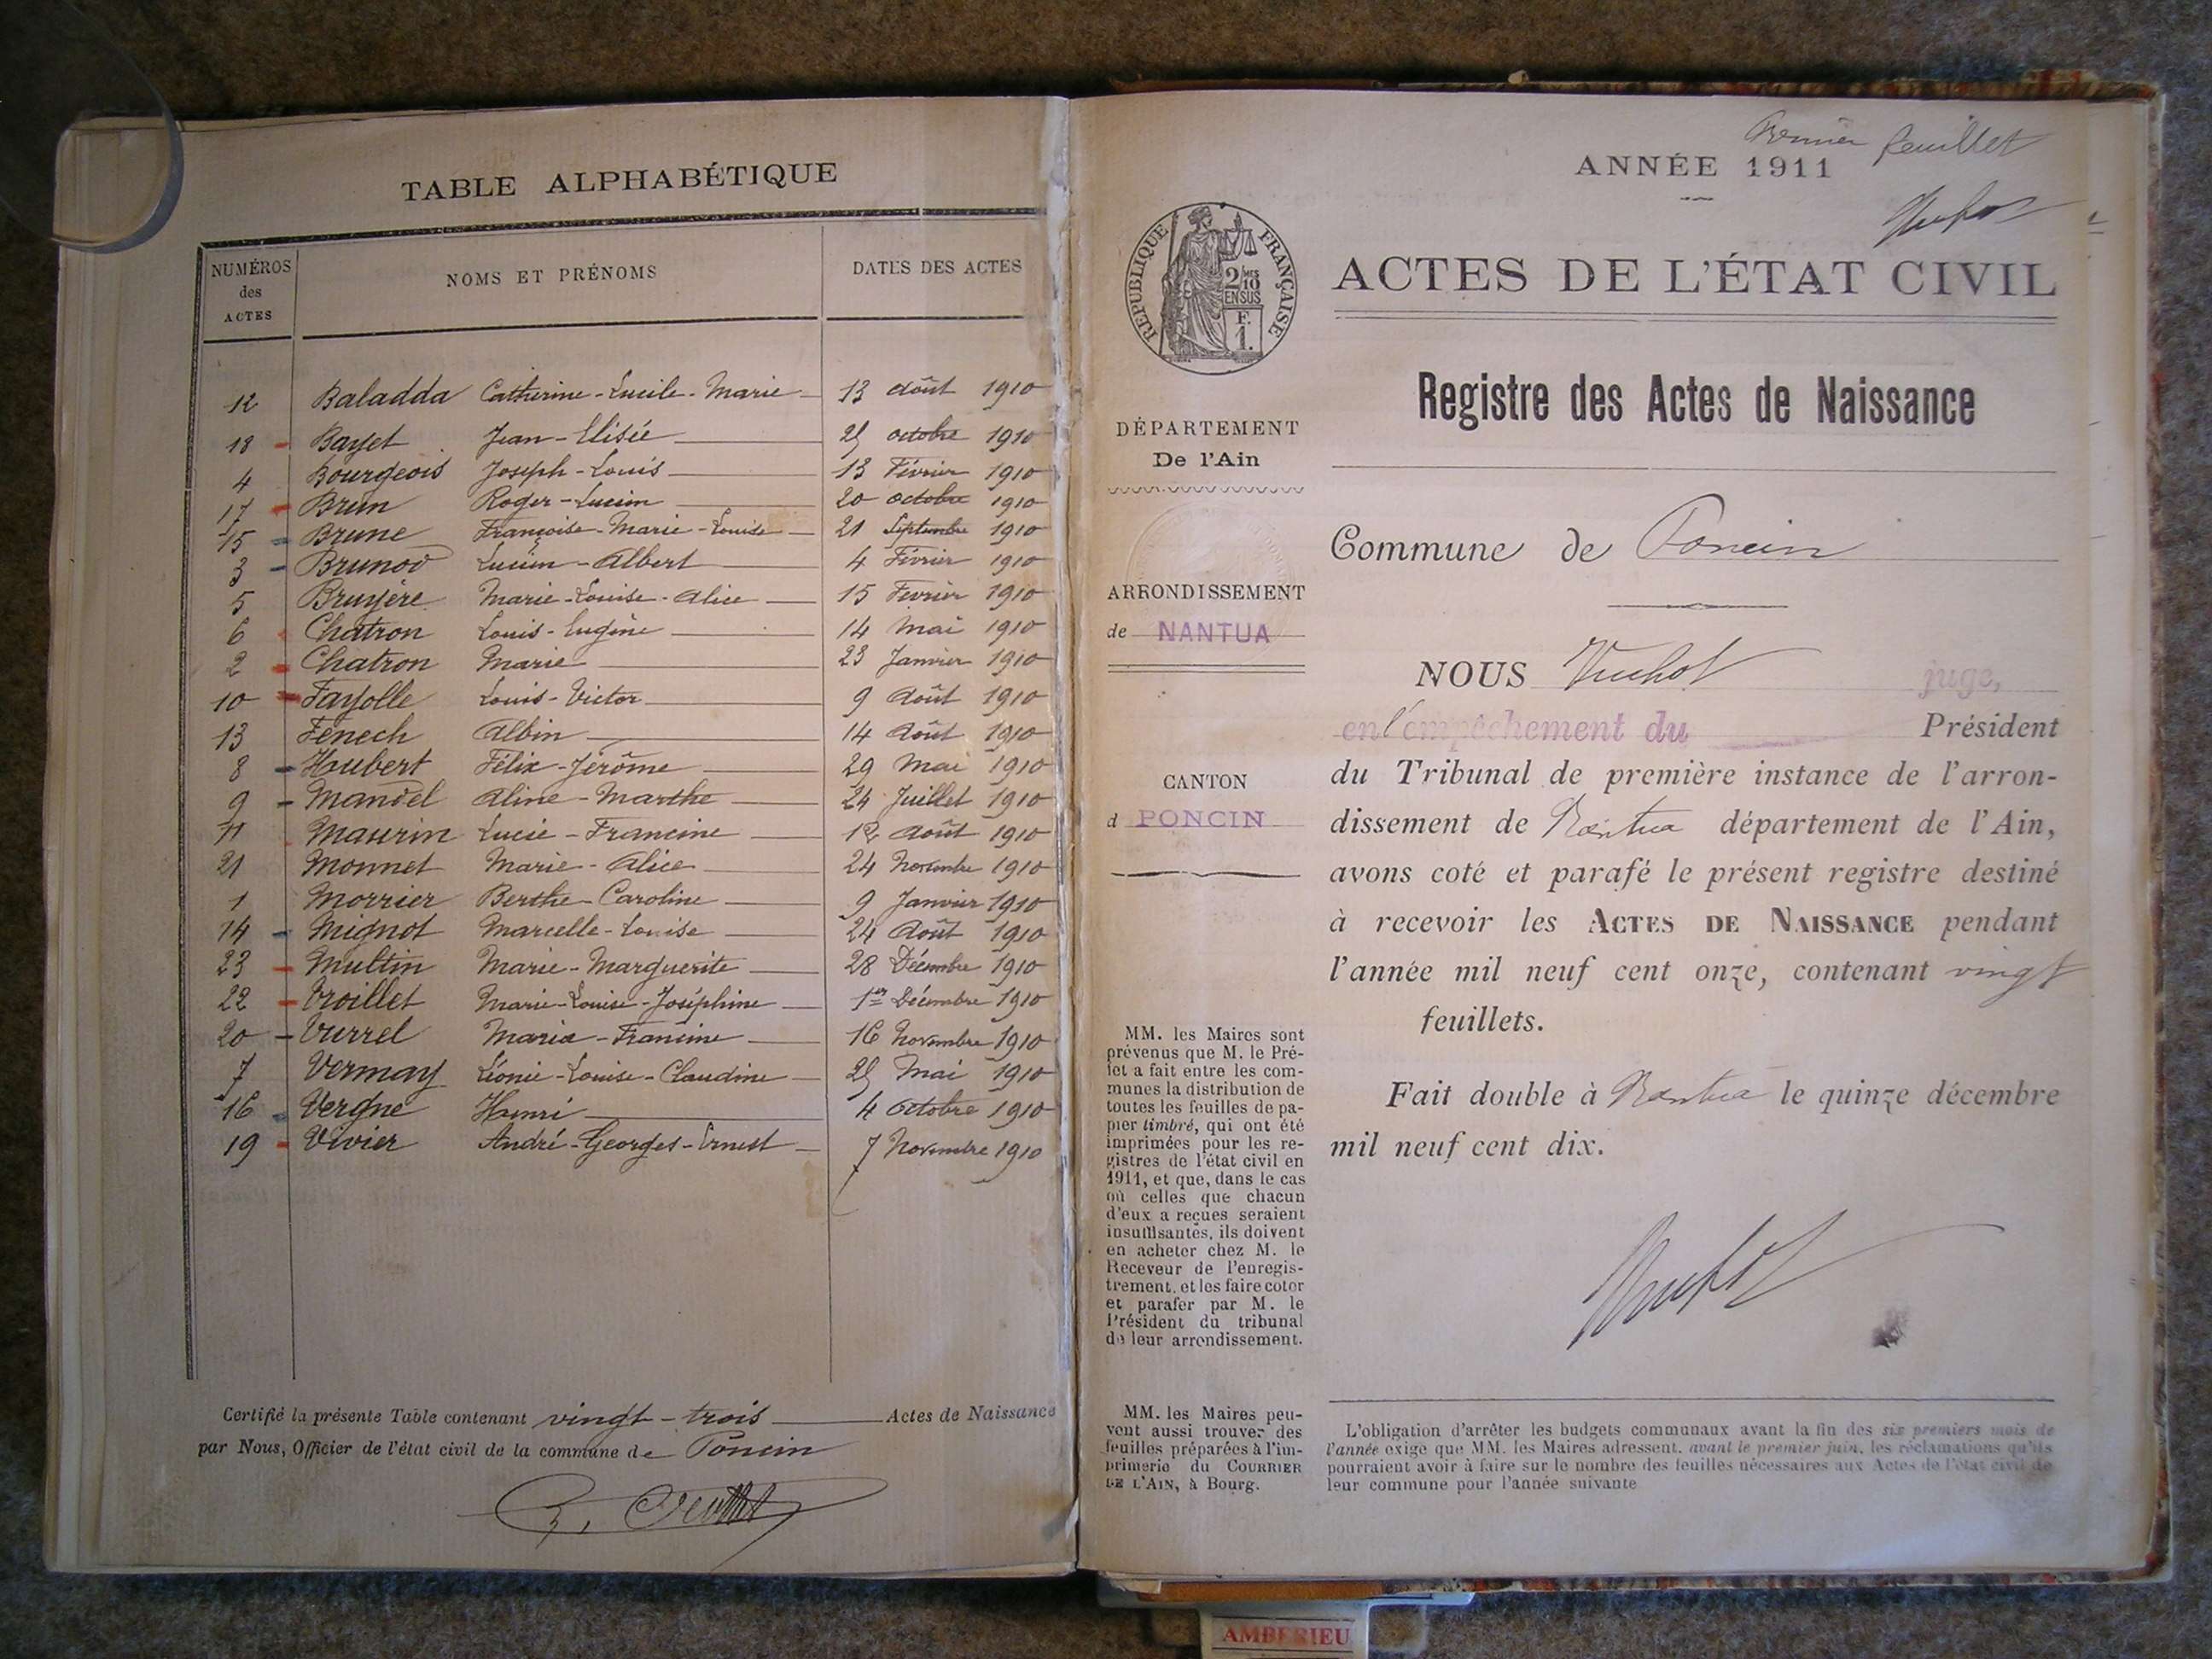 TABLE ALPHABÉTIQUE
NUMÉROS des ACTES NOMS ET PRÉNOMS DATES DES ACTES
12 Baladda Catherine-Lucile-Marie 13 août 1910
18 Bayet Jean-Elisée 25 octobre 1910
4 Bourgeois Joseph-Louis 13 Février 1910
17 Brun Roger-Lucien 20 octobre 1910
15 Brune Françoise-Marie-Louise 21 Septembre 1910
3 Brunod Lucien-Albert 4 Février 1910
5 Bruyère Marie-Louise-Alice 15 Février 1910
6 Chatron Louis-Eugène 14 Mai 1910
2 Chatron Marie 23 Janvier 1910
10 Fayolle Louis-Victor 9 Août 1910
13 Fenech Albin 14 Août 1910
8 Haubert Félix-Jérôme 29 Mai 1910
9 Mandel Aline-Marthe 24 Juillet 1910
11 Maurin Lucie-Francine 12 août 1910
21 Monnet Marie-Alice 24 Novembre 1910
1 Morrier Berthe-Caroline 9 Janvier 1910
14 Mignot Marcelle-Louise 24 Août 1910
23 Multin Marie-Marguerite 28 Décembre 1910
22 Troillet Marie-Louise-Joséphine 1er Décembre 1910
20 Maria-Francine 16 Novembre 1910
7 Vermay Léonie-Louise-Claudine 25 Mai 1910
16 Vergne Henri 4 Octobre 1910
19 Vivier André-Georges-Ernest 7 Novembre 1910
Certifié la présente Table contenant vingt-trois Actes de Naissance
par Nous, Officier de l'état civil de la commune de Poncin
Premier feuillet
ANNÉE 1911
RÉPUBLIQUE FRANÇAISE
2/10 EN SUS
F. 1.
ACTES DE L'ÉTAT CIVIL
Registre des Actes de Naissance
DÉPARTEMENT
De l'Ain
Commune de Poncin
ARRONDISSEMENT
de NANTUA
CANTON
d PONCIN
NOUS Vuchot juge,
en l'empêchement du Président
du Tribunal de première instance de l'arron-
dissement de Nantua département de l'Ain,
avons coté et parafé le présent registre destiné
à recevoir les ACTES DE NAISSANCE pendant
l'année mil neuf cent onze, contenant vingt
feuillets.
Fait double à Nantua le quinze décembre
mil neuf cent dix.
MM. les Maires sont
prévenus que M. le Pré-
fet a fait entre les com-
munes la distribution de
toutes les feuilles de pa-
pier timbré, qui ont été
imprimées pour les re-
gistres de l'état civil en
1911, et que, dans le cas
où celles que chacun
d'eux a reçues seraient
insuffisantes, ils doivent
en acheter chez M. le
Receveur de l'enregis-
trement, et les faire coter
et parafer par M. le
Président du tribunal
de leur arrondissement.
MM. les Maires peu-
vent aussi trouver des
feuilles préparées à l'im-
primerie du COURRIER
DE L'AIN, à Bourg.
L'obligation d'arrêter les budgets communaux avant la fin des six premiers mois de
l'année exige que MM. les Maires adressent, avant le premier juin, les réclamations qu'ils
pourraient avoir à faire sur le nombre des feuilles nécessaires aux Actes de l'état civil de
leur commune pour l'année suivante
AMBERIEU